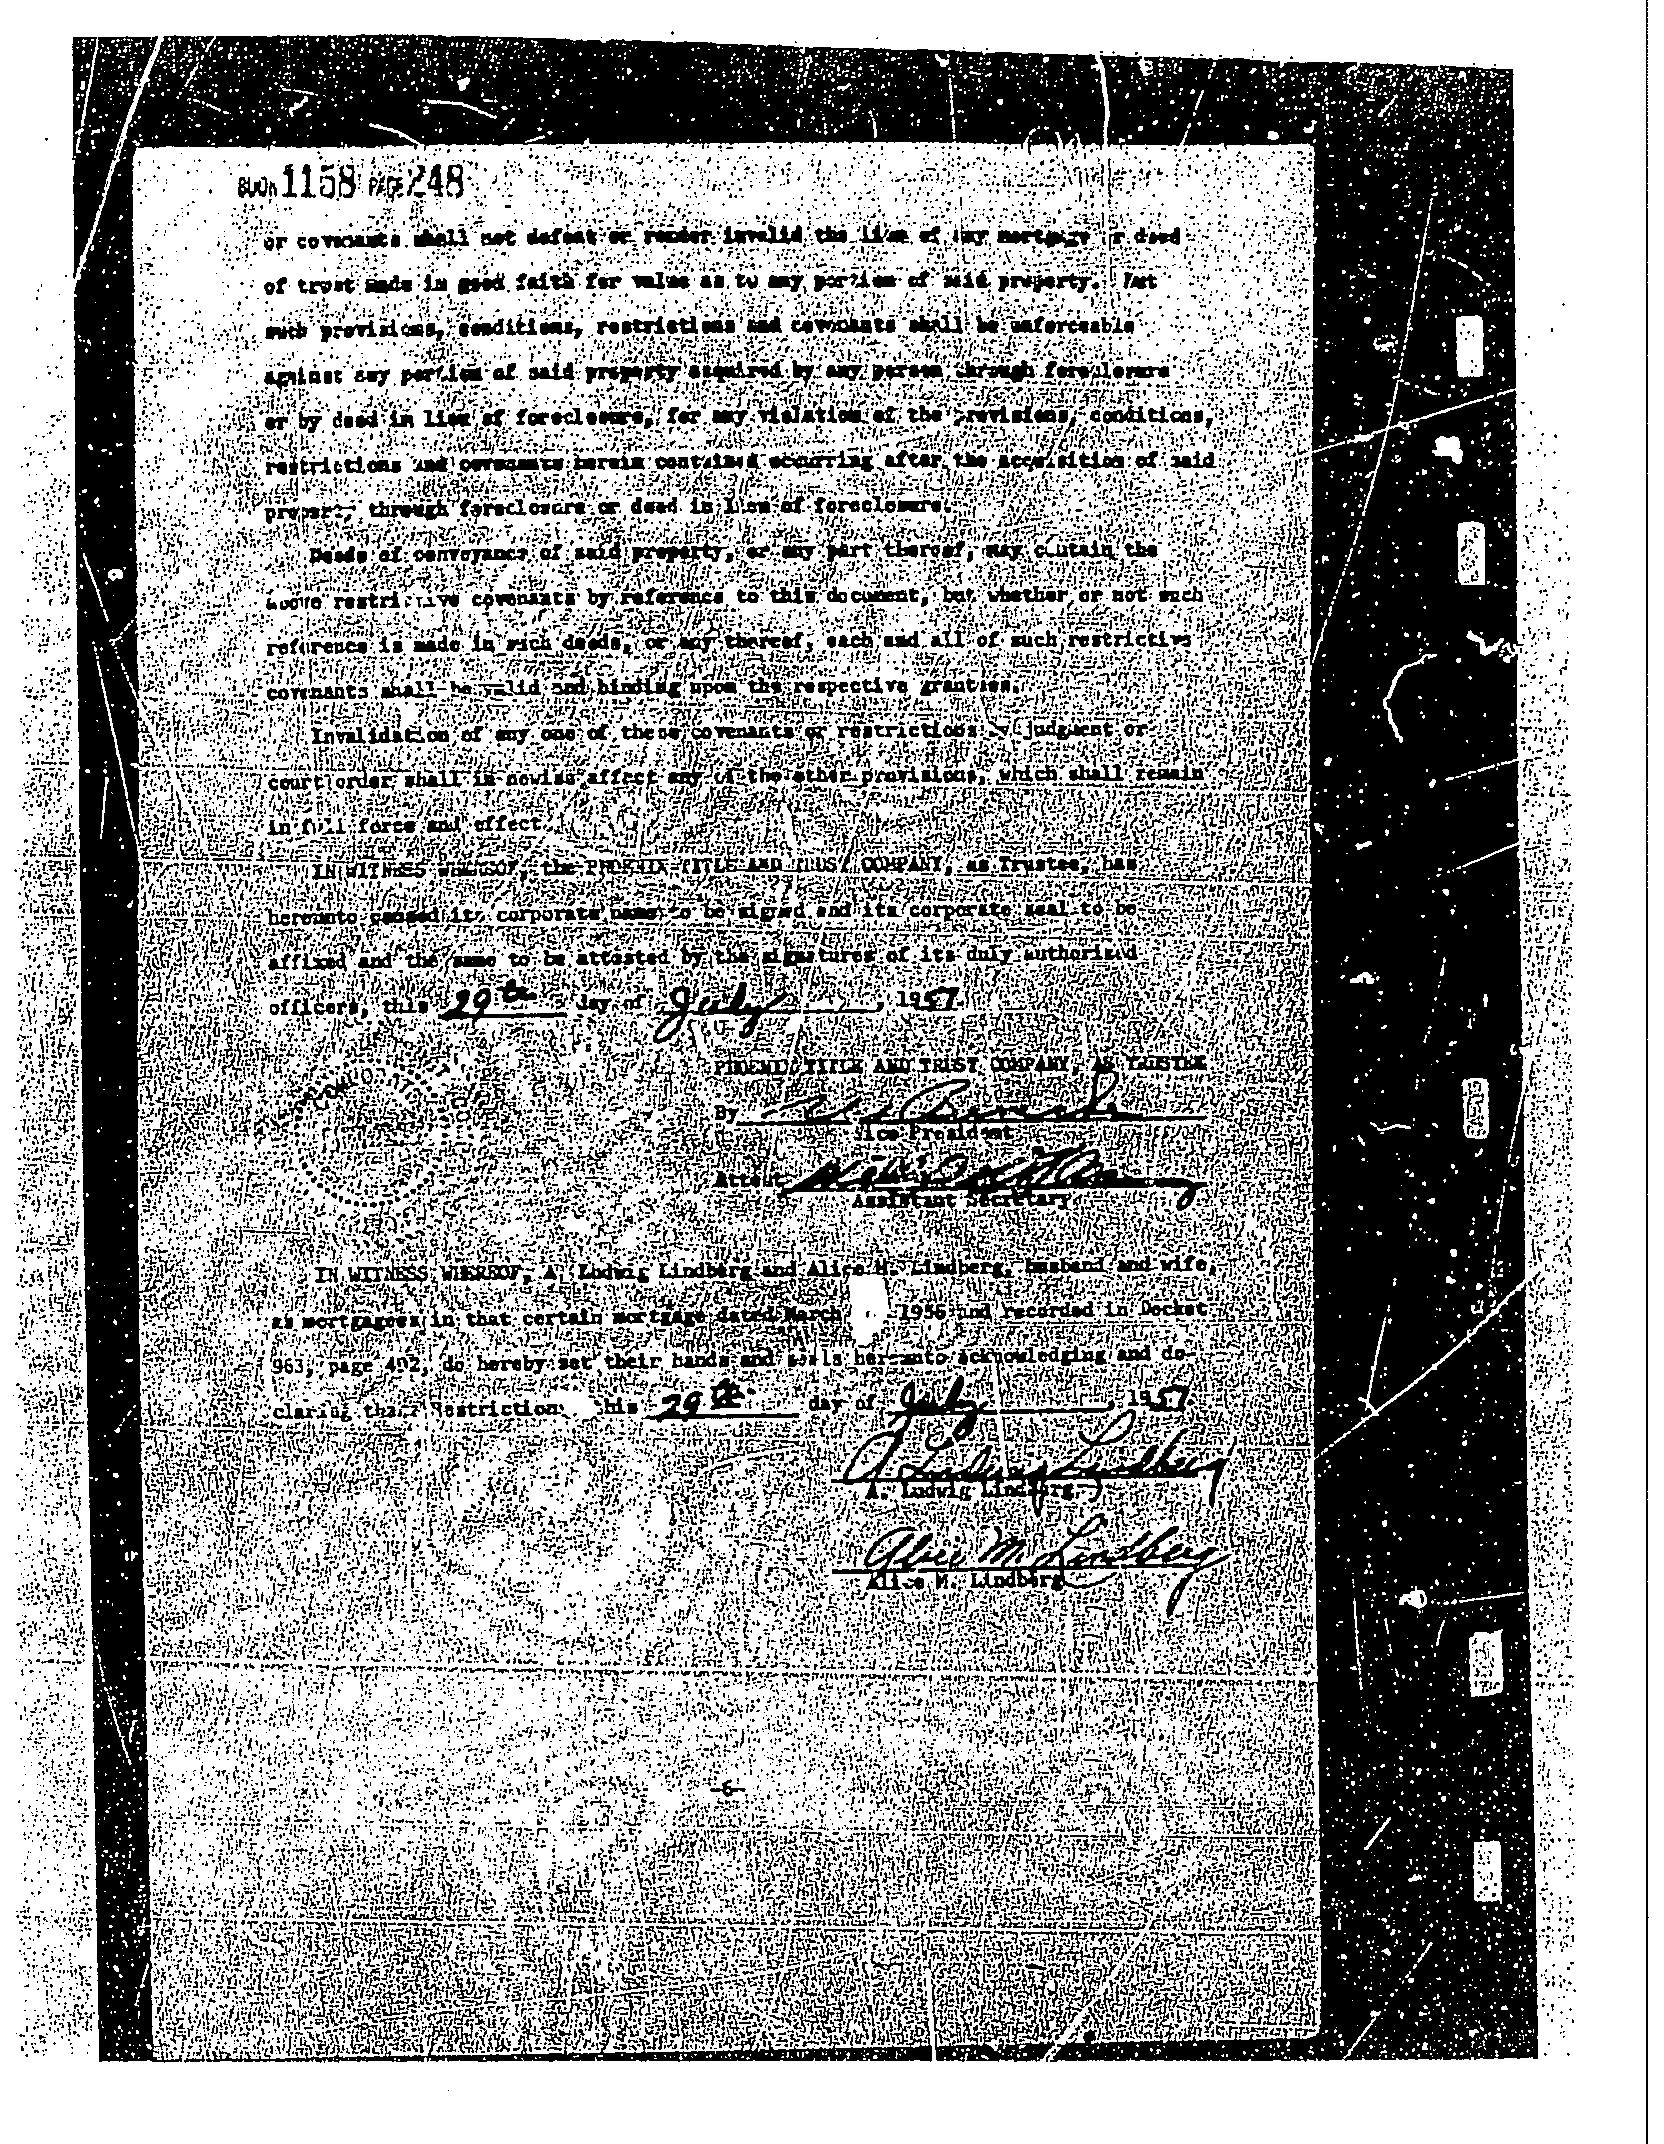 BOOK 1158 PAGE 248
or covenants shall not defeat or render invalid the lien of any mortgage or deed
of trust made in good faith for value as to any portion of said property. But
such provisions, conditions, restrictions and covenants shall be enforceable
against any portion of said property acquired by any person through foreclosure
or by deed in lieu of foreclosure, for any violation of the provisions, conditions,
restrictions and covenants herein contained occurring after the acquisition of said
property through foreclosure or deed in lieu of foreclosure.
Deeds of conveyance of said property, or any part thereof, may contain the
above restrictive covenants by reference to this document, but whether or not such
reference is made in such deeds, or any thereof, each and all of such restrictive
covenants shall be valid and binding upon the respective grantees.
Invalidation of any one of these covenants or restrictions by judgment or
court order shall in nowise affect any of the other provisions, which shall remain
in full force and effect.
IN WITNESS WHEREOF, the PHOENIX TITLE AND TRUST COMPANY, as Trustee, has
hereunto caused its corporate name to be signed and its corporate seal to be
affixed and the same to be attested by the signatures of its duly authorized
officers, this 29th day of July, 1957.
PHOENIX TITLE AND TRUST COMPANY, AS TRUSTEE
By
Vice President
Attest
Assistant Secretary
IN WITNESS WHEREOF, A. Ludwig Lindberg and Alice M. Lindberg, husband and wife,
as mortgagees in that certain mortgage dated March 1956 and recorded in Docket
963, page 402, do hereby set their hands and seals hereunto acknowledging and de-
claring these Restrictions this 29th day of July, 1957.
A Ludwig Lindberg
A. Ludwig Lindberg
Alice M. Lindberg
Alice M. Lindberg
-6-